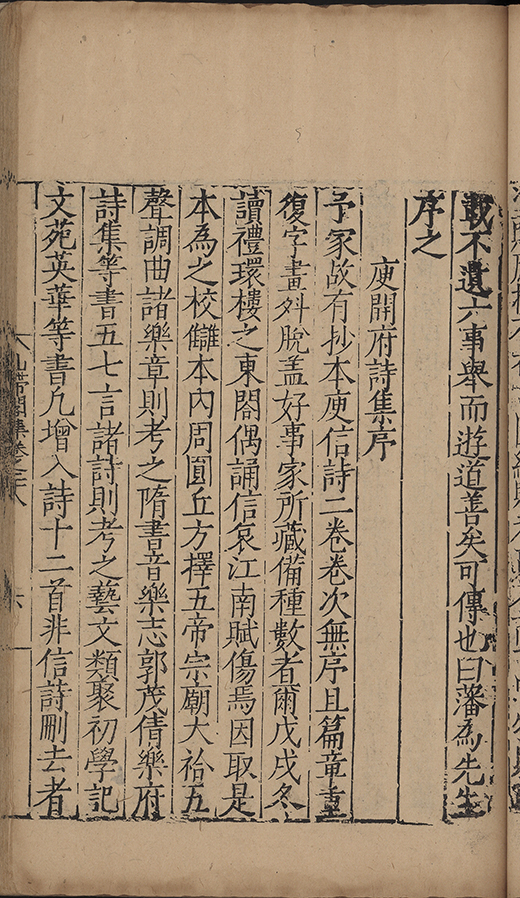 載不遺六事舉而遊道善矣可傳也曰藩為先生
序之
庾開府詩集序
予家故有抄本庾信詩二卷卷次無序且篇章重
復字畫舛脫盖好事家所藏備種數者爾戊戌冬
讀禮環樓之東閤偶誦信哀江南賦傷焉因取是
本為之校讎本内周圓丘方擇五帝宗廟大祫五
聲調曲諸樂章則考之隋書音樂志郭茂倩樂府
詩集等書五七言諸詩則考之藝文類聚初學記
文苑英華等書凡增入詩十二首非信詩刪去者
山帶閣集卷之二十八
六